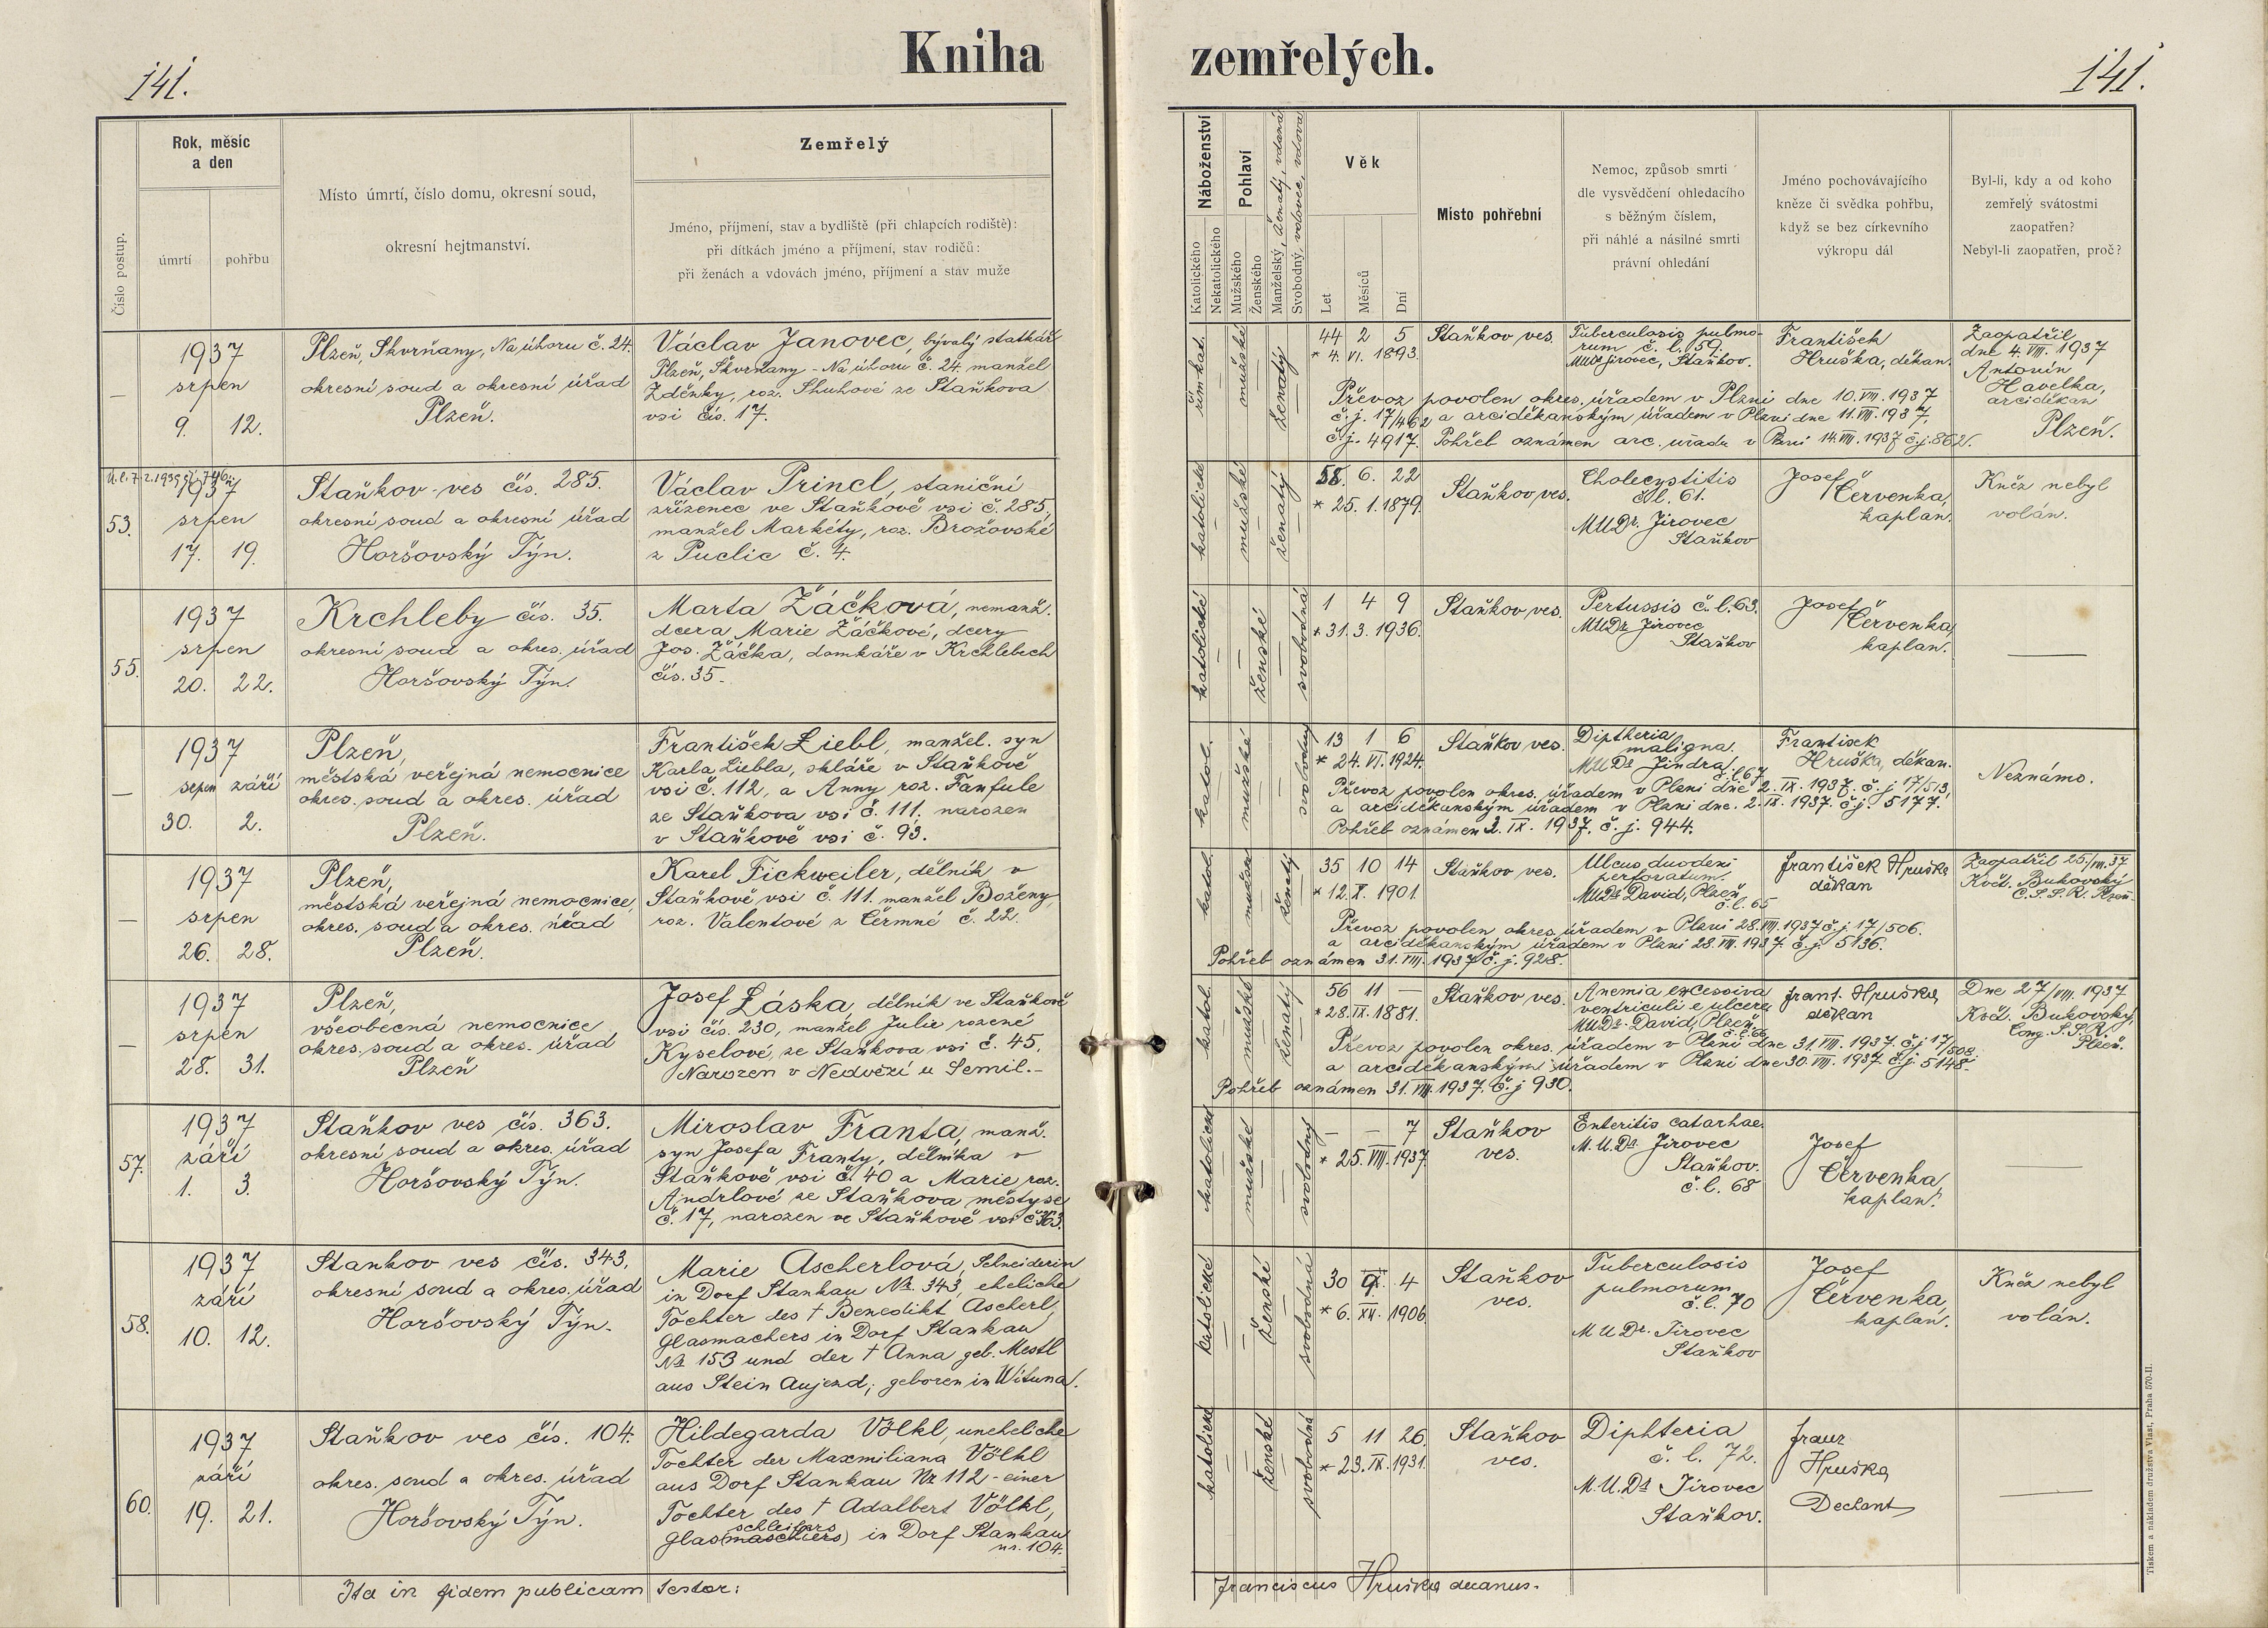 Kniha zemřelých.
141.
141.
Číslo postup.
Rok, měsíc
a den
úmrtí
pohřbu
Místo úmrtí, číslo domu, okresní soud,
okresní hejtmanství.
Zemřelý
Jméno, příjmení, stav a bydliště (při chlapcích rodiště):
při dítkách jméno a příjmení, stav rodičů:
při ženách a vdovách jméno, příjmení a stav muže
Náboženství
Katolického
Nekatolického
Pohlaví
Mužského
Ženského
Manželský, ženatý, vdaná
Svobodný, vdovec, vdova
Věk
Let
Měsíců
Dní
Místo pohřební
Nemoc, způsob smrti
dle vysvědčení ohledacího
s běžným číslem,
při náhlé a násilné smrti
právní ohledání
Jméno pochovávajícího
kněze či svědka pohřbu,
když se bez církevního
výkropu dál
Byl-li, kdy a od koho
zemřelý svátostmi
zaopatřen?
Nebyl-li zaopatřen, proč?
—
1937
srpen
9. 12.
Plzeň, Skvrňany, Na úhoru č. 24.
okresní soud a okresní úřad
Plzeň.
Václav Janovec, bývalý statkář
Plzeň, Skvrňany - Na úhoru č. 24, manžel
Zděnky, roz. Shuhové ze Staňkova
vsi čís. 17.
řím. kat.
mužské
ženatý
44 2 5
* 4. VI. 1893.
Staňkov ves.
Tuberculosis pulmo-
rum č. l. 59.
MUDr Jirovec, Staňkov.
František
Hruška, děkan.
Zaopatřil
dne 4. VIII. 1937
Antonín
Havelka,
arciděkan
Plzeň.
Převoz povolen okres. úřadem v Plzni dne 10. VIII. 1937
č. j. 17/462 a arciděkanským úřadem v Plzni dne 11. VIII. 1937,
č. j. 4917. Pohřeb oznámen arc. úřadu v Plzni 14. VIII. 1937 č. j. 862.
53.
1937
srpen
17. 19.
Staňkov-ves čís. 285.
okresní soud a okresní úřad
Horšovský Týn.
Václav Princl, staniční
zřízenec ve Staňkově vsi č. 285,
manžel Markéty, roz. Brožovské
z Puclic č. 4.
katolické
mužské
ženatý
58. 6. 22
* 25. 1. 1879.
Staňkov ves.
Cholecystitis
č. l. 61.
MUDr. Jirovec
Staňkov
Josef
Červenka,
kaplan.
Kněz nebyl
volán.
55.
1937
srpen
20. 22.
Krchleby čís. 35.
okresní soud a okres. úřad
Horšovský Týn.
Marta Žáčková, nemanž.
dcera Marie Žáčkové, dcery
Jos. Žáčka, domkáře v Krchlebech
čís. 35.
katolické
ženské
svobodná
1 4 9
* 31. 3. 1936.
Staňkov ves.
Pertussis č. l. 63.
MUDr Jirovec
Staňkov
Josef
Červenka,
kaplan.
—
—
1937
srpen září
30. 2.
Plzeň,
městská veřejná nemocnice
okres. soud a okres. úřad
Plzeň.
František Liebl, manžel. syn
Karla Liebla, skláře v Staňkově
vsi č. 112, a Anny roz. Fanfule
ze Staňkova vsi č. 111, narozen
v Staňkově vsi č. 93.
katol.
mužské
svobodný
13 1 6
* 24. VI. 1924.
Staňkov ves.
Diptheria
maligna.
MUDr Jindra,
č. l. 67
František
Hruška, děkan.
Neznámo.
Převoz povolen okres. úřadem v Plzni dne 2. IX. 1937. č. j. 17/513,
a arciděkanským úřadem v Plzni dne. 2. IX. 1937. č. j. 5177.
Pohřeb oznámen 2. IX. 1937. č. j. 944.
—
1937
srpen
26. 28.
Plzeň,
městská veřejná nemocnice,
okres. soud a okres. úřad
Plzeň.
Karel Fickweiler, dělník v
Staňkově vsi č. 111. manžel Boženy,
roz. Valentové z Čermné č. 22.
katol.
mužské
ženatý
35 10 14
* 12. X. 1901.
Staňkov ves.
Ulcus duodeni
perforatum.
MUDr David, Plzeň,
č. l. 65
František Hruška
děkan
Zaopatřil 25/VIII. 37
Květ. Bukovský
C. S. S. R. Plzeň.
Převoz povolen okres. úřadem v Plzni 28. VIII. 1937 č. j. 17/506.
a arciděkanským úřadem v Plzni 28. VIII. 1937. č. j. 5136.
Pohřeb oznámen 31. VIII. 1937 č. j. 928.
—
1937
srpen
28. 31.
Plzeň,
všeobecná nemocnice,
okres. soud a okres. úřad
Plzeň
Josef Láska, dělník ve Staňkově
vsi čís. 230, manžel Julie rozené
Kyselové, ze Staňkova vsi č. 45.
Narozen v Nedvězí u Semil.-
katol.
mužské
ženatý
56 11 —
* 28. IX. 1881.
Staňkov ves.
Anemia excessiva
ventriculi e ulcere
MUDr. David, Plzeň,
č. l. 66
Frant. Hruška,
děkan
Dne 27/VIII. 1937
Květ. Bukovský,
Cong. S. S. R.
Plzeň.
Převoz povolen okres. úřadem v Plzni dne 31. VIII. 1937. č. j. 17/508.
a arciděkanským úřadem v Plzni dne 30. VIII. 1937. č. j. 5148.
Pohřeb oznámen 31. VIII. 1937. č. j. 930.
57.
1937
září
1. 3.
Staňkov ves čís. 363.
okresní soud a okres. úřad
Horšovský Týn.
Miroslav Franta, manž.
syn Josefa Franty, dělníka v
Staňkově vsi č. 40 a Marie roz.
Andrlové ze Staňkova městyse
č. 17, narozen ve Staňkově vsi č. 363.
katolické
mužské
svobodný
— — 7
* 25. VIII. 1937.
Staňkov
ves.
Enteritis catarhae.
M.U.Dr Jirovec
Staňkov.
č. l. 68
Josef
Červenka,
kaplan.
—
58.
1937
září
10. 12.
Stankov ves čís. 343,
okresní soud a okres. úřad
Horšovský Týn.
Marie Ascherlová, Schneiderin
in Dorf Stankau Nr. 343, eheliche
Tochter des † Benedikt Ascherl,
Glasmachers in Dorf Stankau
Nr 153 und der † Anna geb. Mestl
aus Stein Aujezd; geboren in Wituna.
katolické
ženské
svobodná
30 9. 4
* 6. XII. 1906.
Staňkov
ves.
Tuberculosis
pulmorum
č. l. 70
MUDr. Jirovec
Staňkov
Josef
Červenka,
kaplan.
Kněz nebyl
volán.
60.
1937
září
19. 21.
Staňkov ves čís. 104.
okres. soud a okres. úřad
Horšovský Týn.
Hildegarda Völkl, uneheliche
Tochter der Maxmiliana Völkl
aus Dorf Stankau Nr 112 - einer
Tochter des † Adalbert Völkl,
schleifers
Glas(maschiers) in Dorf Stankau
nr. 104.
katolické
ženské
svobodná
5 11 26.
* 23. IX. 1931.
Staňkov
ves.
Diphteria
č. l. 72.
M.U.Dr Jirovec
Staňkov.
Franz
Hruška
Dechant
—
Ita in fidem publicam testor:
Franciscus Hruška decanus.
Tiskem a nákladem družstva Vlast, Praha 570-II.